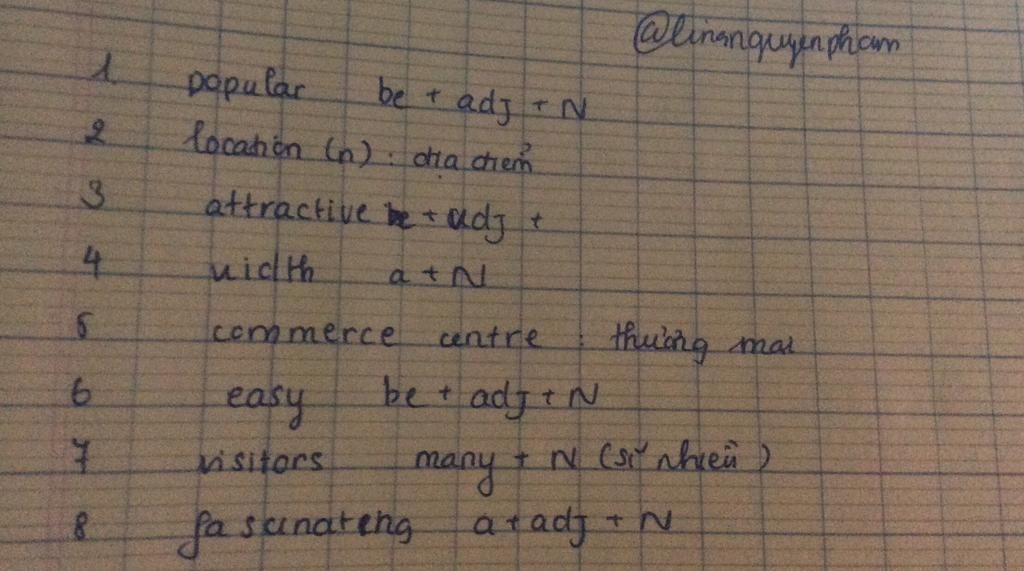 @linhnguyenpham
1 popular be + adj + N
2 location (n) : địa điểm
3 attractive be + adj +
4 width a + N
5 commerce centre : thương mại
6 easy be + adj + N
7 visitors many + N (số nhiều)
8 fascinateng a + adj + N